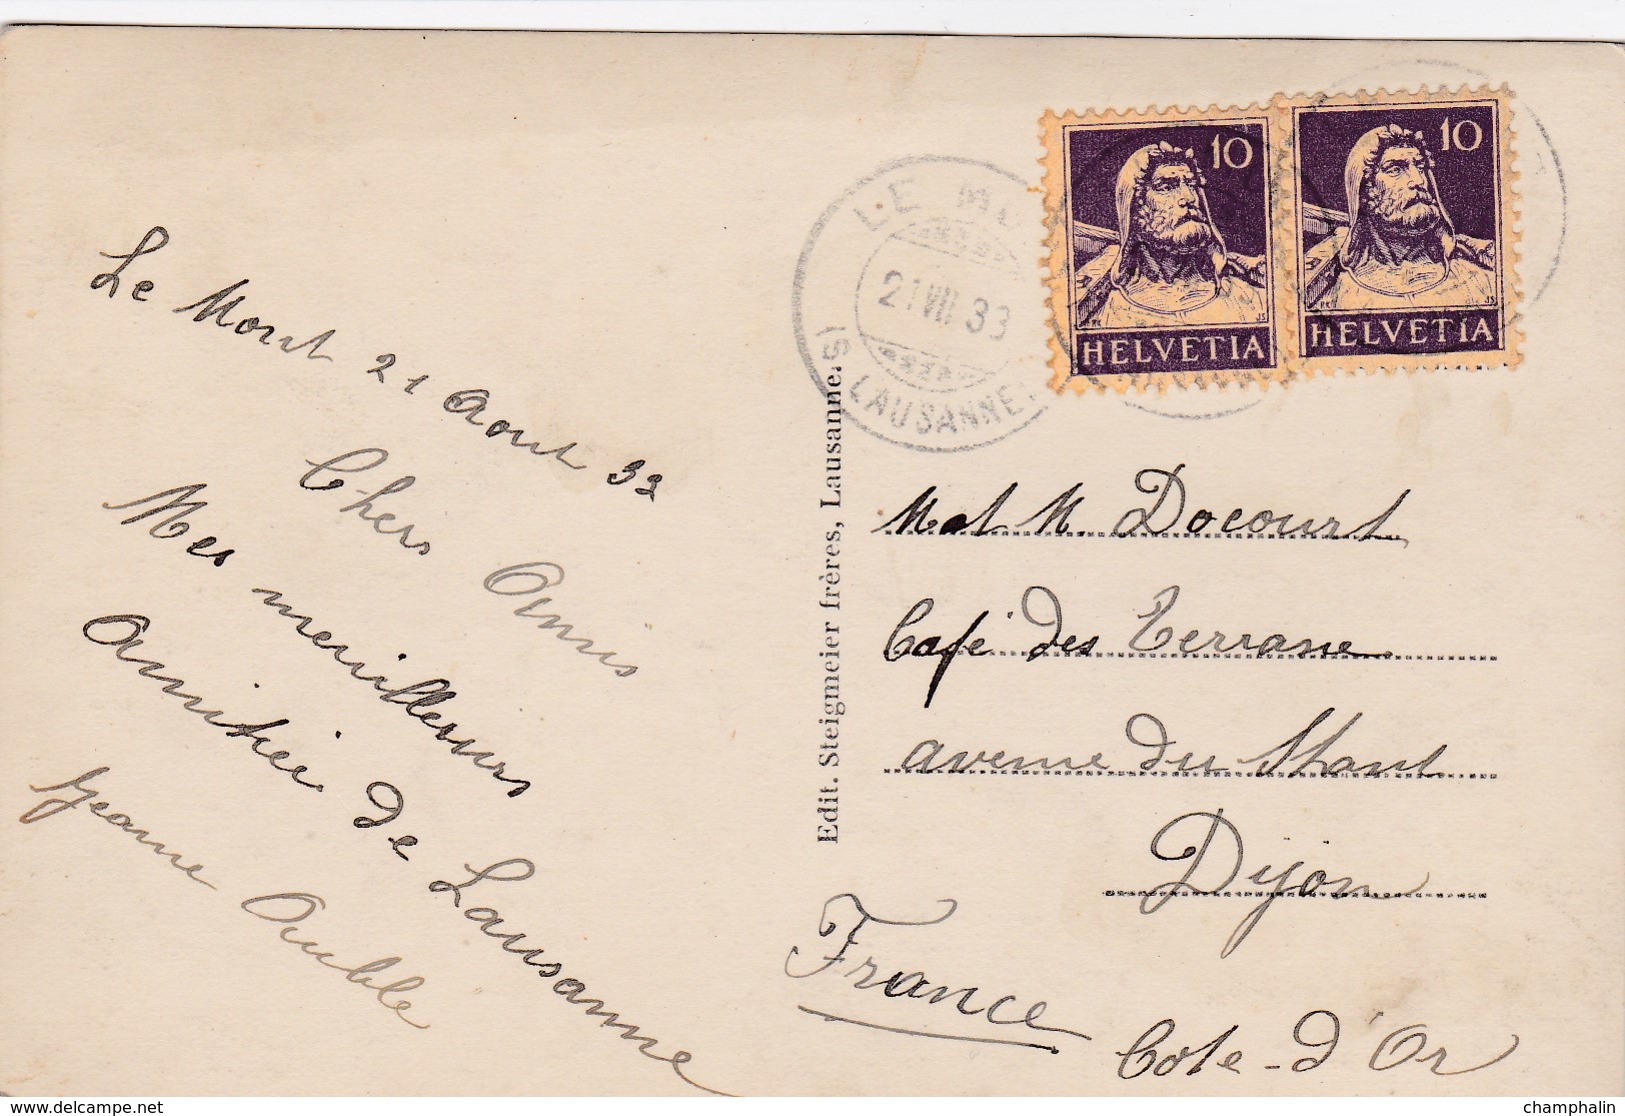 Le Mont 21 Aout 33
Chers Amis
Mes meuilleurs
Amitiée de Lausanne
Jeanne Aublé
Edit. Steigmeier frères, Lausanne.
LE MO
21 VIII 33
(S/ LAUSANNE)
10
HELVETIA
10
HELVETIA
M et M. Docourt
Café des Terrasse
avenue du
Dijon
France
Cote-d'Or
delcampe.net
champhalin